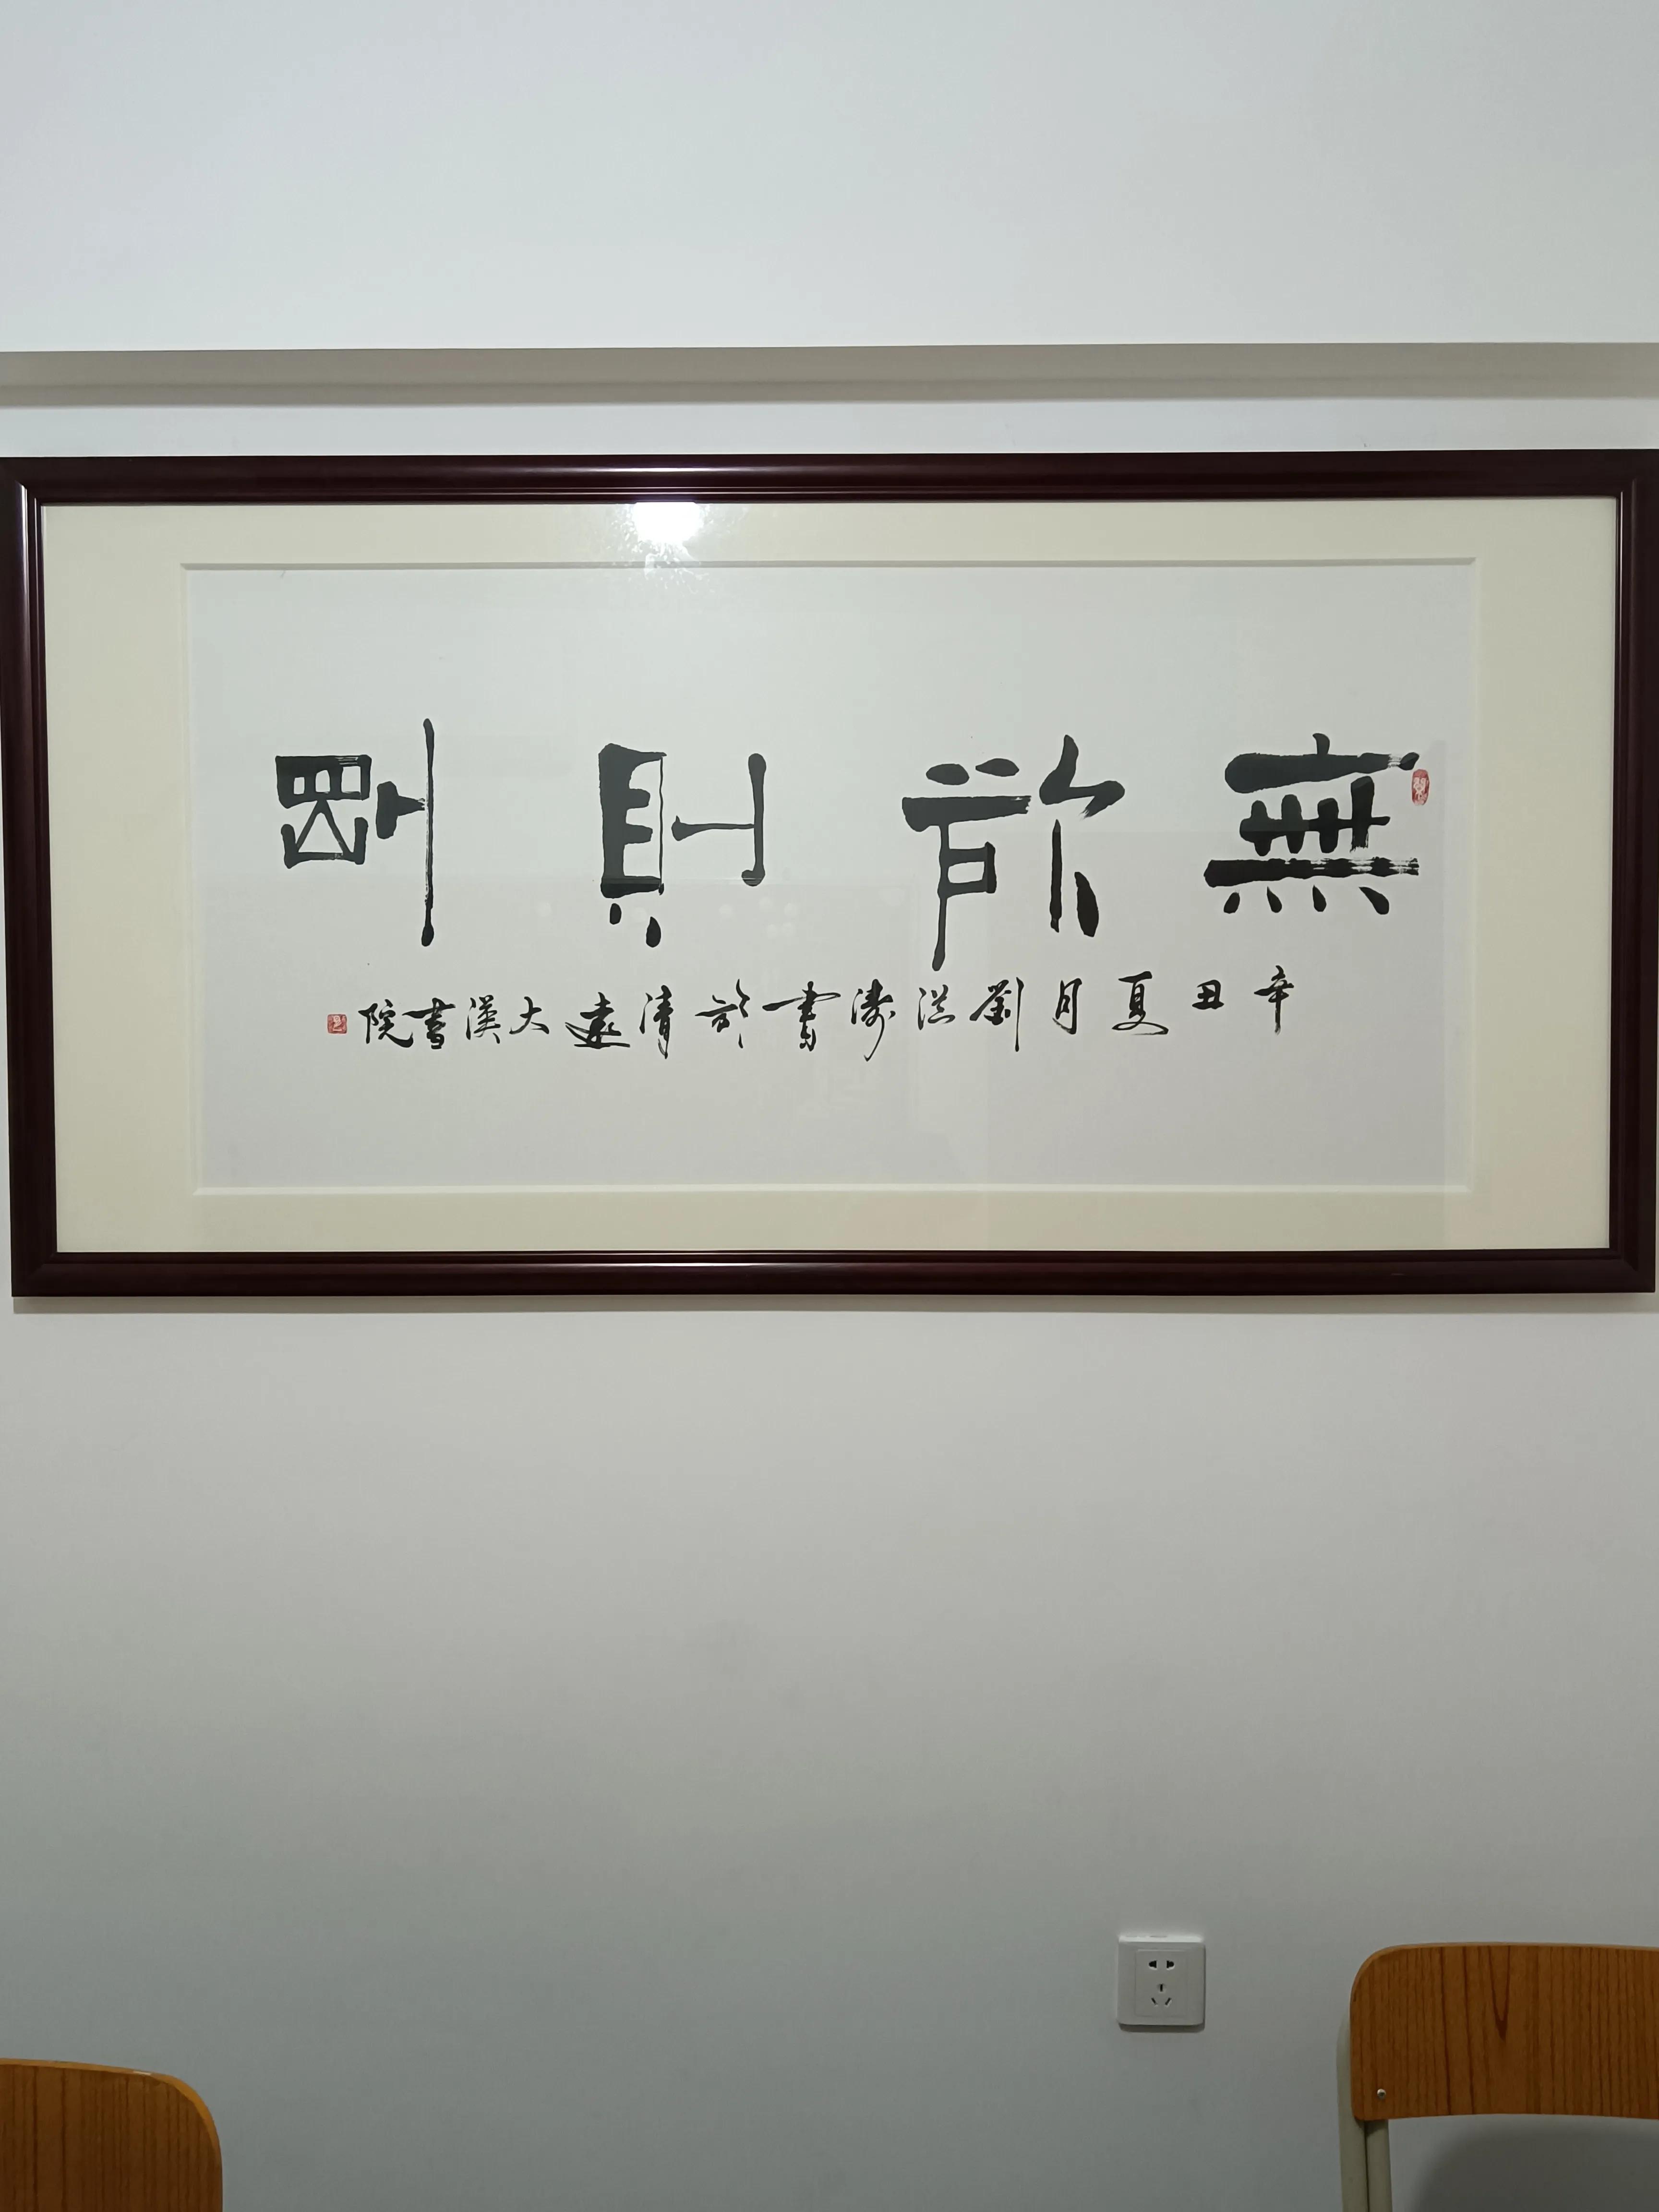 無欲則剛
辛丑夏月劉洪濤書於清遠大漢書院